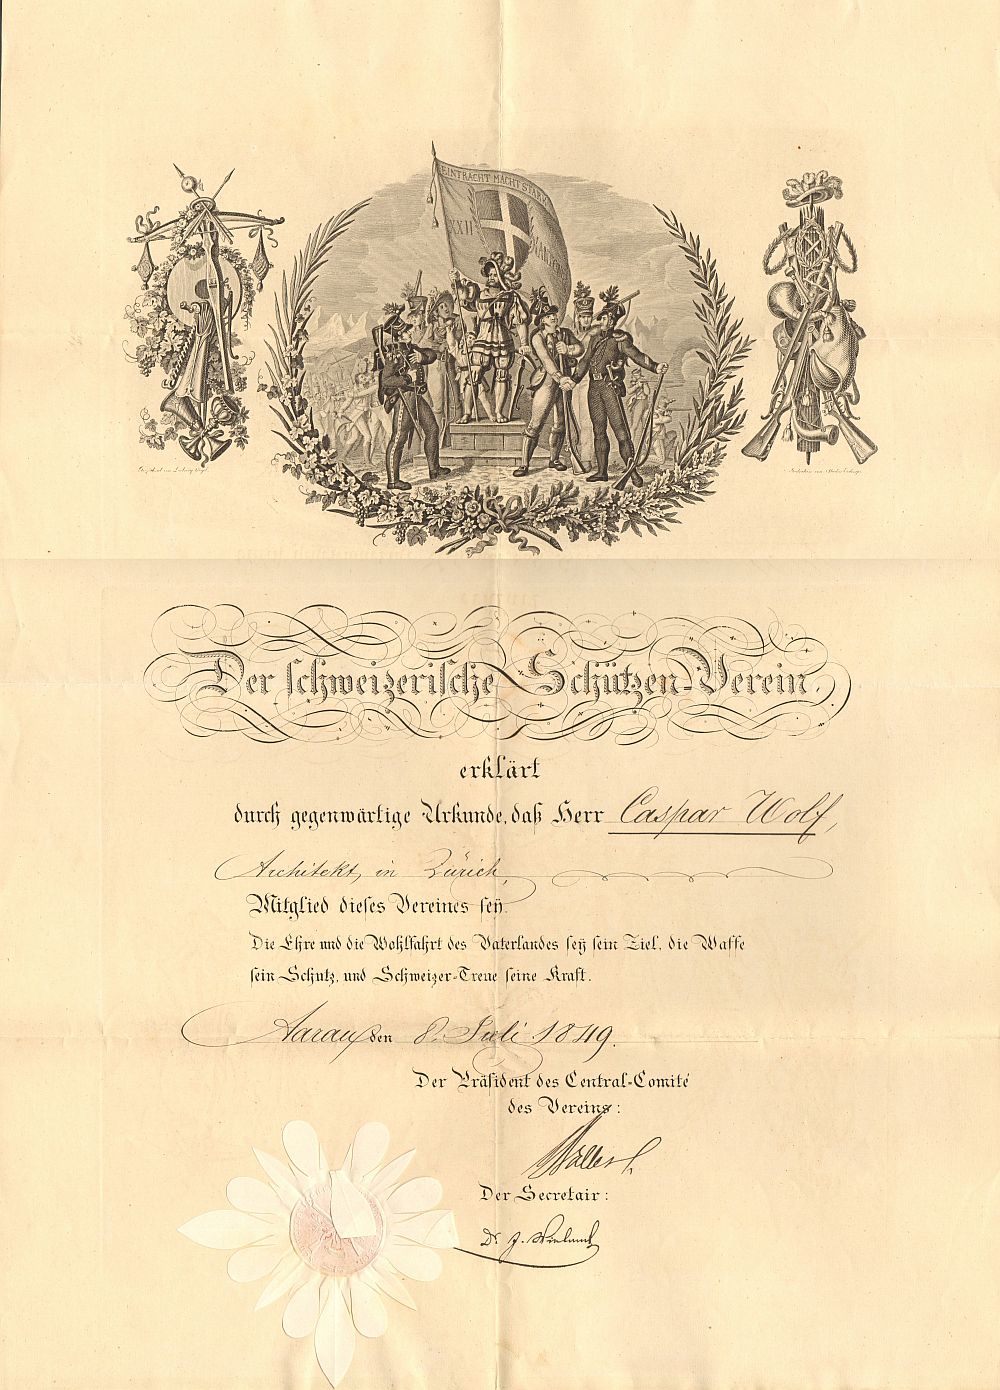 EINTRACHT MACHT STARK
XXII
Der schweizerische Schützen-Verein,
erklärt
durch gegenwärtige Urkunde, daß Herr Caspar Wolf,
Architekt, in Zürich,
Mitglied dieses Vereines sey.
Die Ehre und die Wohlfahrt des Vaterlandes sey sein Ziel, die Waffe
sein Schutz, und Schweizer-Treue seine Kraft.
Aarau, den 8. Juli 1849.
Der Präsident des Central-Comité
des Vereins:
Der Secretair:
Dr. J.